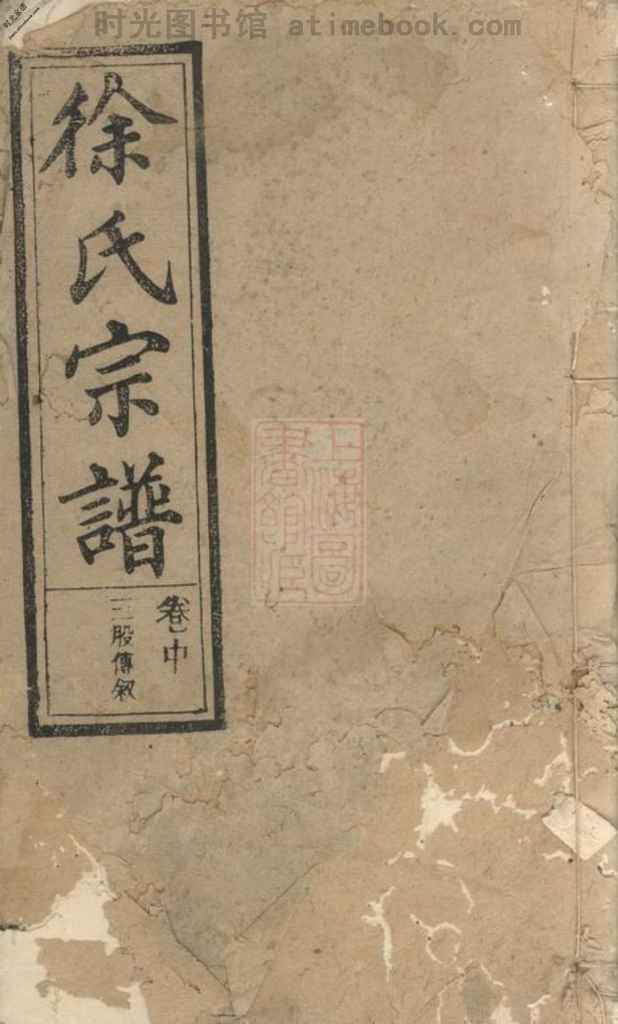 时光图书馆 atimebook.com
徐氏宗譜
卷中
三股傳叙
上海圖書館藏